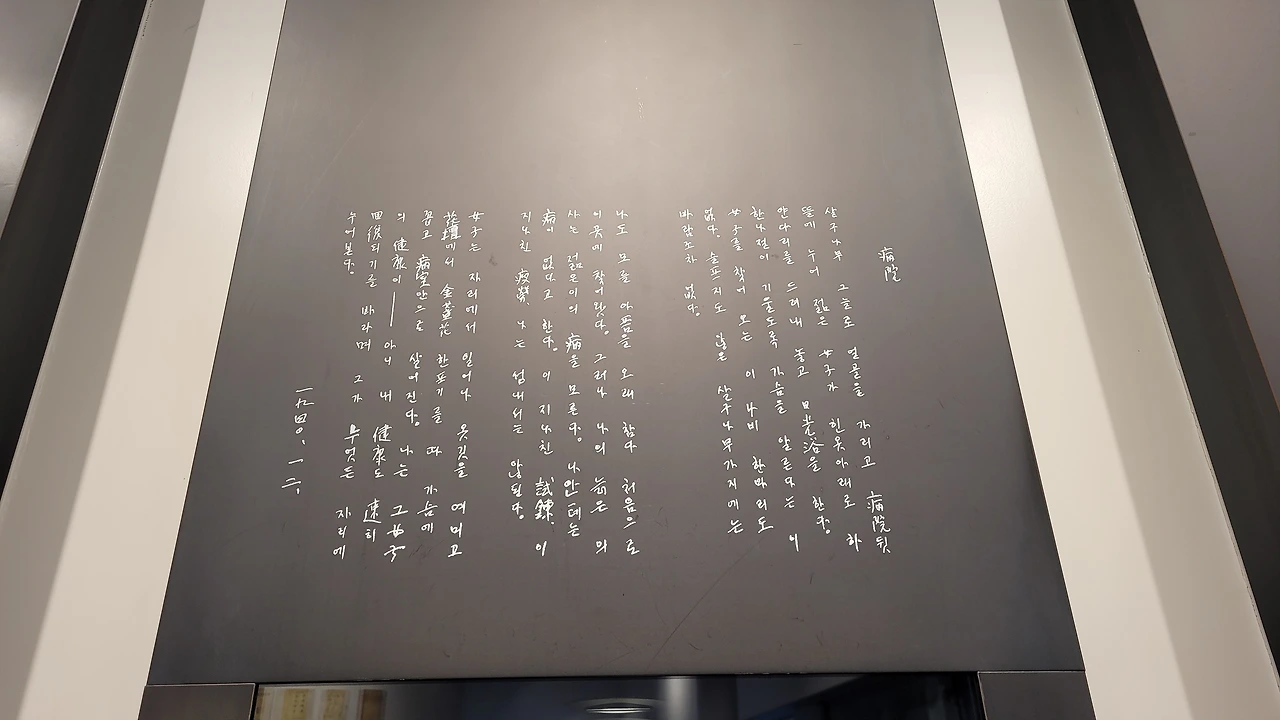 病院
살구나무 그늘로 얼골을 가리고 病院뒷
뜰에 누어 젊은 女子가 힌옷아래로 하
얀다리를 드려내 놓고 日光浴을 한다.
한나절이 기울도록 가슴을 알른다는 이
女子를 찾어 오는 이 나비 한마리도
없다. 슬프지도 않은 살구나무가지에는
바람조차 없다.
나도 모를 아픔을 오래 참다 처음으로
이곳에 찾어왔다. 그러나 나의 늙은 의
사는 젊은이의 病을 모른다. 나안테는
病이 없다고 한다. 이 지나친 試鍊, 이
지나친 疲勞, 나는 성내서는 않된다.
女子는 자리에서 일어나 옷깃을 여미고
花壇에서 金盞花 한포기를 따 가슴에
꼽고 病室안으로 살어진다. 나는 그女子
의 健康이―― 아니 내 健康도 速히
回復되기를 바라며 그가 누엇든 자리에
누어본다.
一九四〇, 一二,